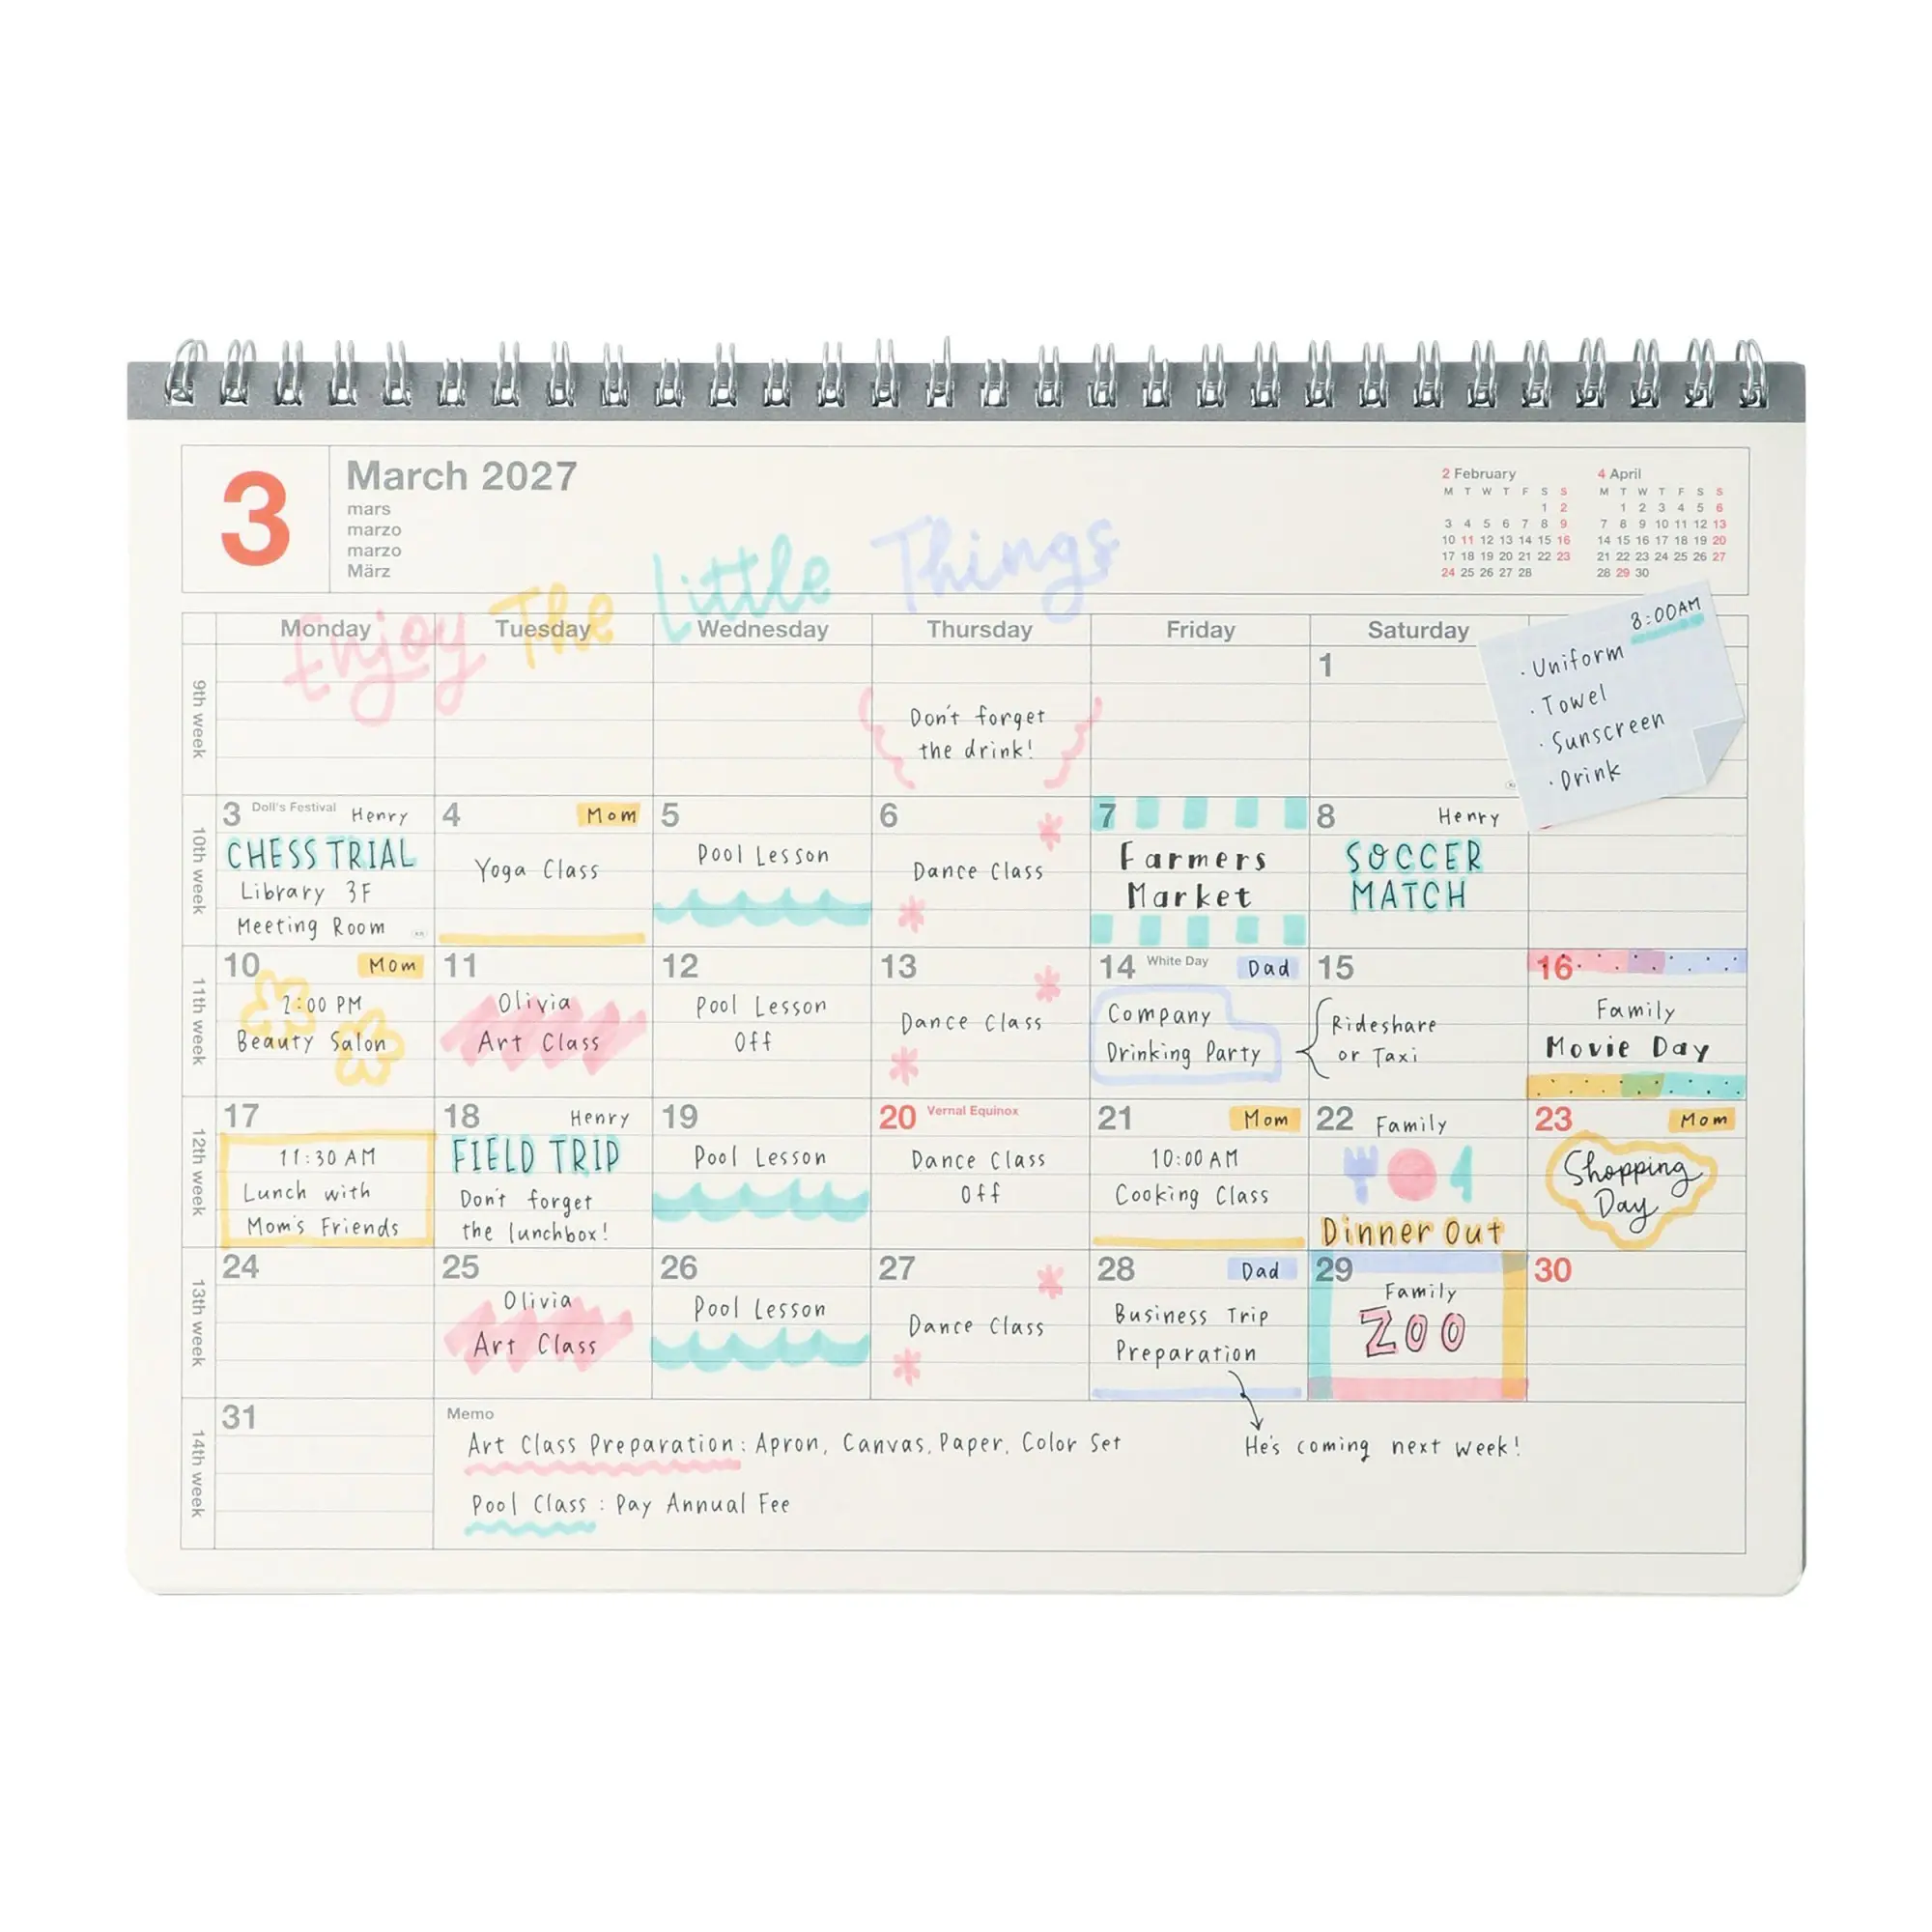 3
March 2027
mars
marzo
marzo
März
2 February
M T W T F S S
1 2
3 4 5 6 7 8 9
10 11 12 13 14 15 16
17 18 19 20 21 22 23
24 25 26 27 28
4 April
M T W T F S S
1 2 3 4 5 6
7 8 9 10 11 12 13
14 15 16 17 18 19 20
21 22 23 24 25 26 27
28 29 30
Enjoy The Little Things
Monday Tuesday Wednesday Thursday Friday Saturday
8:00AM
· Uniform
· Towel
· Sunscreen
· Drink
9th week
Don't forget
the drink!
1
10th week
3 Doll's Festival Henry
CHESS TRIAL
Library 3F
Meeting Room
4 Mom
Yoga Class
5
Pool Lesson
6
Dance Class
7
Farmers
Market
8 Henry
SOCCER
MATCH
11th week
10 Mom
2:00 PM
Beauty Salon
11
Olivia
Art Class
12
Pool Lesson
Off
13
Dance Class
14 White Day Dad
Company
Drinking Party
15
Rideshare
or Taxi
16
Family
Movie Day
12th week
17
11:30 AM
Lunch with
Mom's Friends
18 Henry
FIELD TRIP
Don't forget
the lunchbox!
19
Pool Lesson
20 Vernal Equinox
Dance Class
Off
21 Mom
10:00 AM
Cooking Class
22 Family
Dinner Out
23 Mom
Shopping
Day
13th week
24
25
Olivia
Art Class
26
Pool Lesson
27
Dance Class
28 Dad
Business Trip
Preparation
29
Family
ZOO
30
14th week
31
Memo
Art Class Preparation: Apron, Canvas, Paper, Color Set
He's coming next week!
Pool Class : Pay Annual Fee